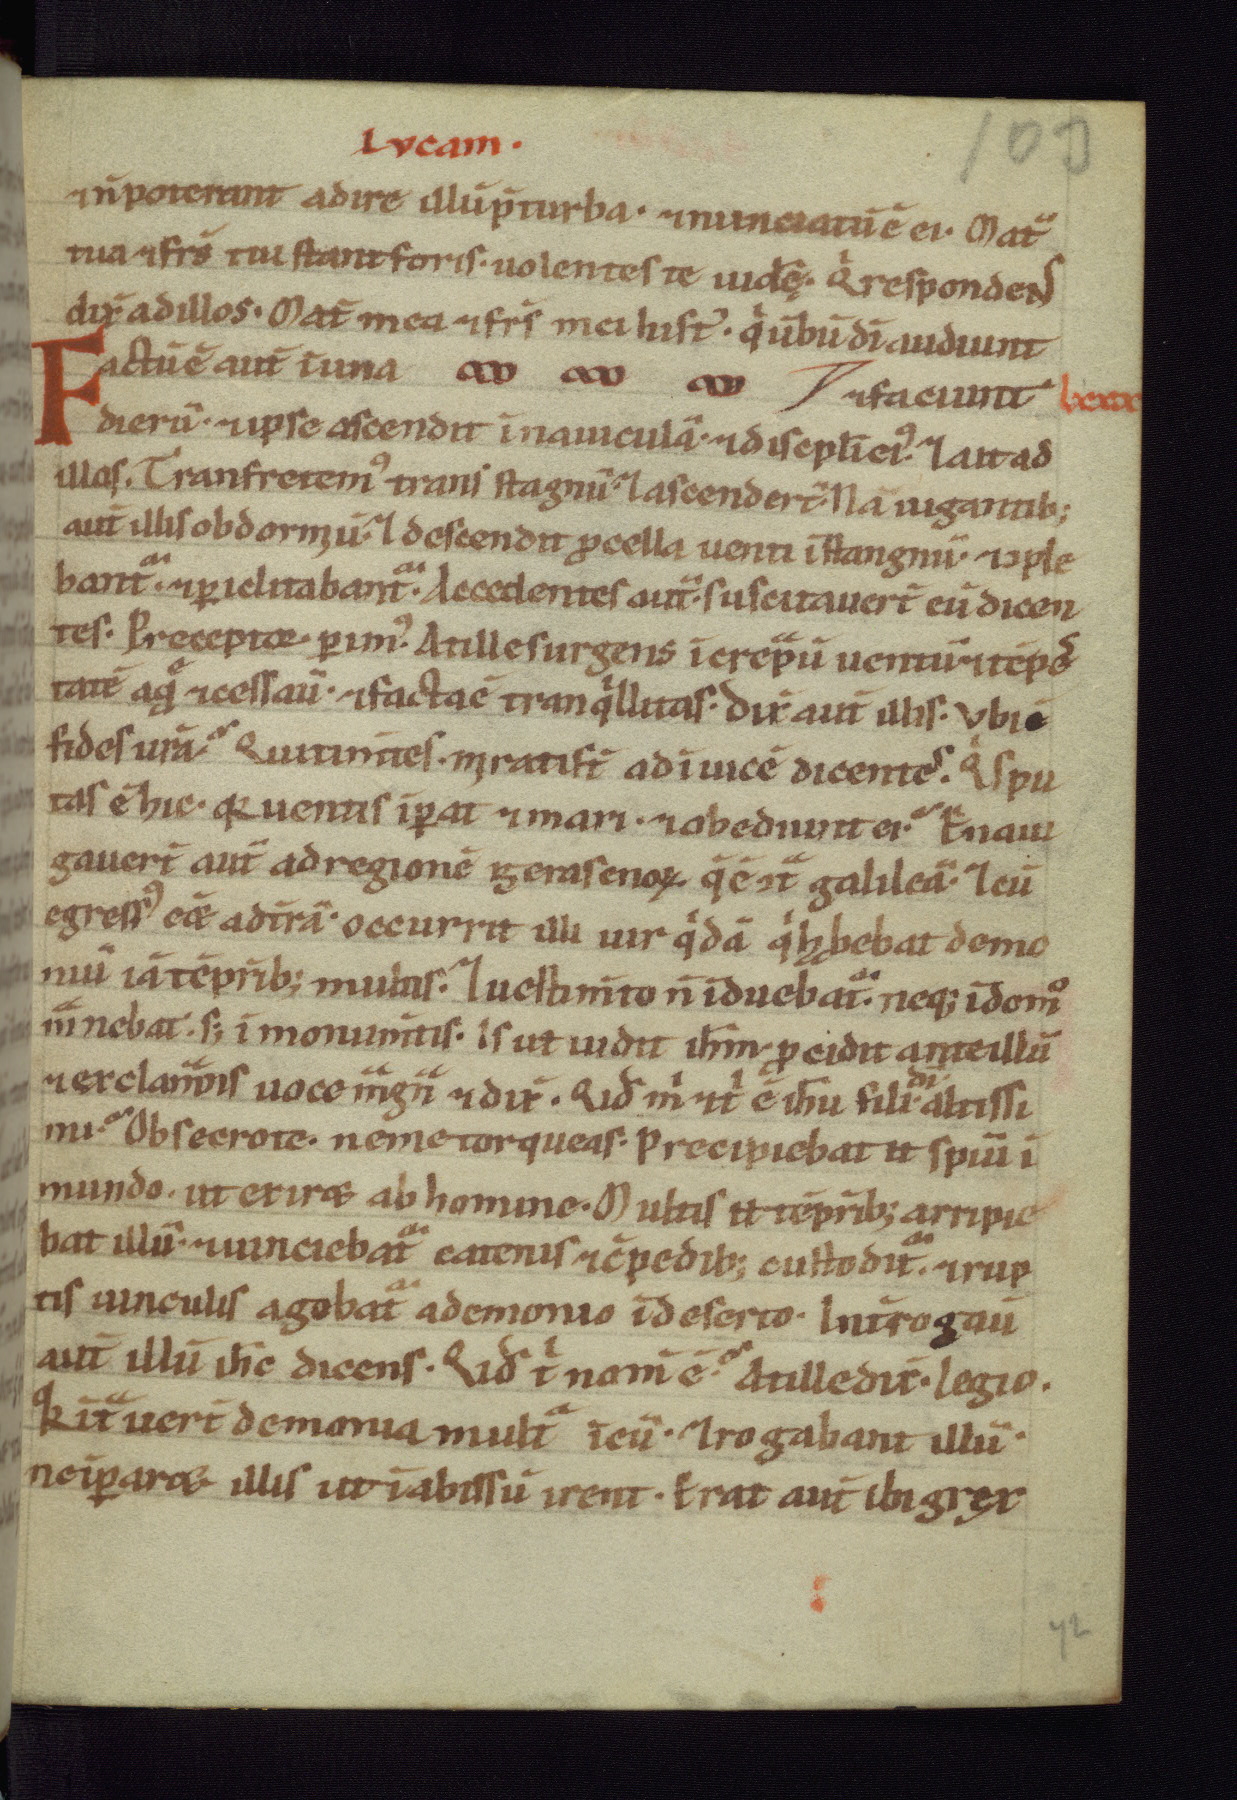 Lvcam.
103
⁊ n̄ poterant adire illū p̄ turba. ⁊ nunciatū ē ei. Mat̄
tua ⁊ fr̄s tui stant foris. uolentes te uidē. Q̍ respondens
dix̄ ad illos. Mat̄ mea ⁊ fr̄s mei hi st̄. q̍ ūbū dī audiunt
Factū ē aut̄ ī una ⁊ faciunt. lxxx
dierū. ⁊ ipse ascendit ī nauiculā. ⁊ discipl̄i ei᾽. ⁊ ait ad
illos. Transfretem᾽ trans stagnū. ⁊ ascendert̄. Nauigantib;
aut̄ illis obdormiū. ⁊ descendit p̱cella uenti ī stangnū. ⁊ ↄple
bant̄. ⁊ ꝑiclitabant̄. Accedentes aut̄. suscitauert̄ eū dicen
tes. Preceptor ꝑim᾽. At ille surgens īcrepaū uentū ⁊ tēpes
tatē aq̄ ⁊ cessaū. ⁊ facta ē tranq̍llitas. Dix̄ aut̄ illis. Vbi ē
fides ur̄a. Qui tim̄tes. mirati st̄ ad īuicē dicentes. Q̍s pu
tas ē hic. q̍a uentis īꝑat ⁊ mari. ⁊ obediunt ei. Enaui
gauert̄ aut̄ ad regionē gerasenoꝝ. q̄ ē ↄt̄ galileā. ⁊ cū
egress᾽ eēt ad t̄rā. occurrit illi uir q̍dā q̍ hēbebat demo
niū iā tēpr̄ib; multis. ⁊ uestim̄to n̄ īduebat̄. neq; ī domo
manebat. s; ī monum̄tis. Is ut uidit ihm̄. p̱cidit ante illū
⁊ exclamans uoce magna ⁊ dix̄. Q̍d m̍ ⁊ t̍ ē ihu fili dī altissi
mi. Obsecro te. ne me torqueas. Precipiebat n̄ spiū ī
mundo. ut exiret ab homine. Multis n̄ tēpr̄ib; arripie
bat illū. ⁊ uinciebat̄ catenis ⁊ cōpedib; custodit̄. ⁊ rup
tis uinculis agebat̄ a demonio ī deserto. Int̄rogaū
aut̄ illū ihc̄ dicens. Q̍d t̍ nom̄ ē. At ille dix̄. legio.
q̍a īt̄uert̄ demonia multa ī eū. ⁊ rogabant illū.
ne īꝑaret illis ut ī abissū irent. Erat aut̄ ibi grex
42